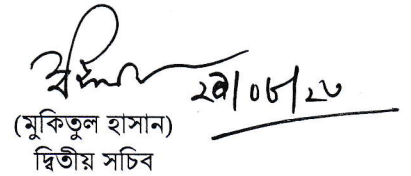 ২৯/০৮/২৩
(মুকিতুল হাসান)
দ্বিতীয় সচিব